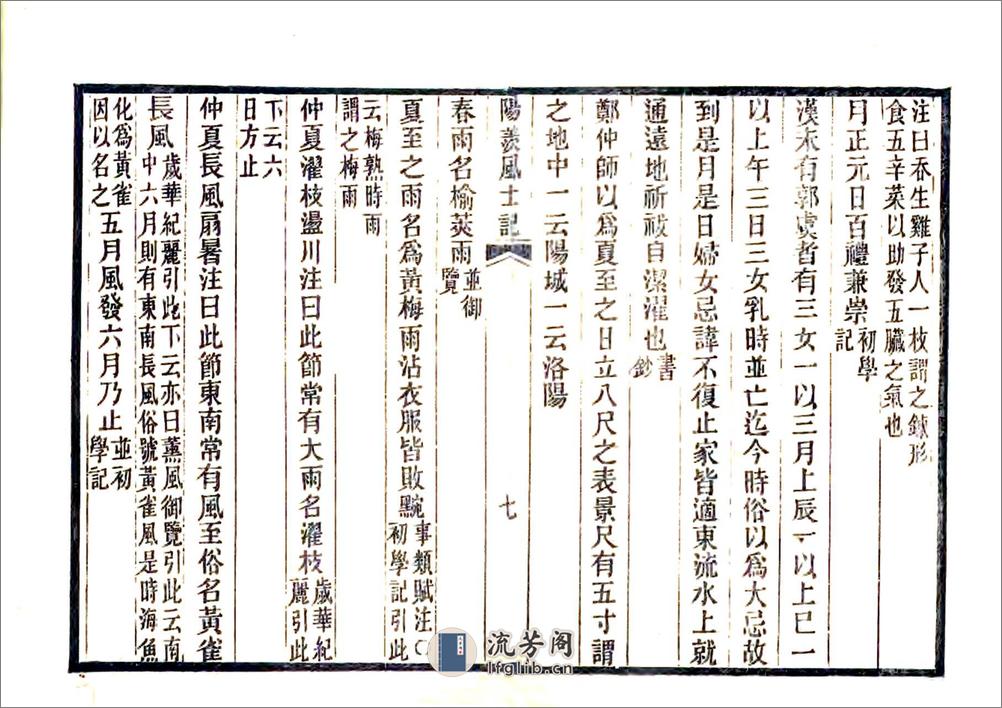 注曰吞生雞子人一枚謂之鍊形
食五辛菜以助發五臟之氣也
月正元日百禮兼崇初學記
漢末有郭虞者有三女一以三月上辰一以上巳一
以上午三日三女乳時並亡迄今時俗以爲大忌故
到是月是日婦女忌諱不復止家皆適東流水上就
通遠地祈祓自潔濯也書鈔
鄭仲師以爲夏至之日立八尺之表景尺有五寸謂
之地中一云陽城一云洛陽
陽羨風土記 七
春雨名榆莢雨並御覽
夏至之雨名爲黃梅雨沾衣服皆敗黦事類賦注○初學記引此
云梅熟時雨謂之梅雨
仲夏濯枝盪川注曰此節常有大雨名濯枝歲華紀麗引此
下云六日方止
仲夏長風扇暑注曰此節東南常有風至俗名黃雀
長風歲華紀麗引此下云亦曰薰風御覽引此云南中六月則有東南長風俗號黃雀風是時海魚
化爲黃雀因以名之五月風發六月乃止並初學記
流芳阁
lfglib.cn